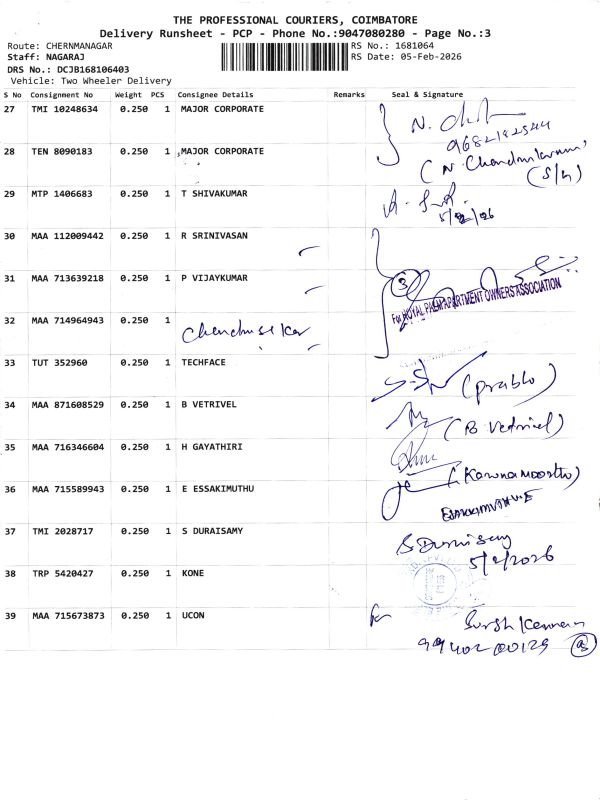 THE PROFESSIONAL COURIERS, COIMBATORE
Delivery Runsheet - PCP - Phone No.:9047080280 - Page No.:3
Route: CHERNMANAGAR
RS No.: 1681064
Staff: NAGARAJ
RS Date: 05-Feb-2026
DRS No.: DCJB168106403
Vehicle: Two Wheeler Delivery
S No Consignment No Weight PCS Consignee Details Remarks Seal & Signature
27 TMI 10248634 0.250 1 MAJOR CORPORATE
28 TEN 8090183 0.250 1 MAJOR CORPORATE
(N. Chandru
(S/G)
29 MTP 1406683 0.250 1 T SHIVAKUMAR
5/2/26
30 MAA 112009442 0.250 1 R SRINIVASAN
31 MAA 713639218 0.250 1 P VIJAYKUMAR
3
For ROYAL PALM APARTMENT OWNERS ASSOCIATION
32 MAA 714964943 0.250 1
33 TUT 352960 0.250 1 TECHFACE
(prabhu)
34 MAA 871608529 0.250 1 B VETRIVEL
(B. Vetrivel)
35 MAA 716346604 0.250 1 H GAYATHIRI
36 MAA 715589943 0.250 1 E ESSAKIMUTHU
37 TMI 2028717 0.250 1 S DURAISAMY
S Duraisamy
5/2/2026
38 TRP 5420427 0.250 1 KONE
39 MAA 715673873 0.250 1 UCON
for